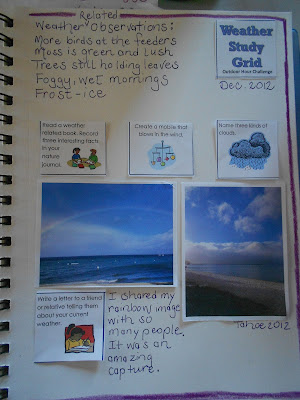 Related
Weather Observations:
More birds at the feeders
Moss is green and lush
Trees still holding leaves
Foggy, wet mornings
Frost-ice
Weather
Study
Grid
Outdoor Hour Challenge
Dec. 2012
Read a weather
related book. Record
three interesting facts
in your
nature
journal.
Create a mobile that
blows in the wind.
Name three kinds of
clouds.
Write a letter to a friend
or relative telling them
about your current
weather.
I shared my
rainbow image
with so
many people.
It was an
amazing
capture.
Tahoe 2012